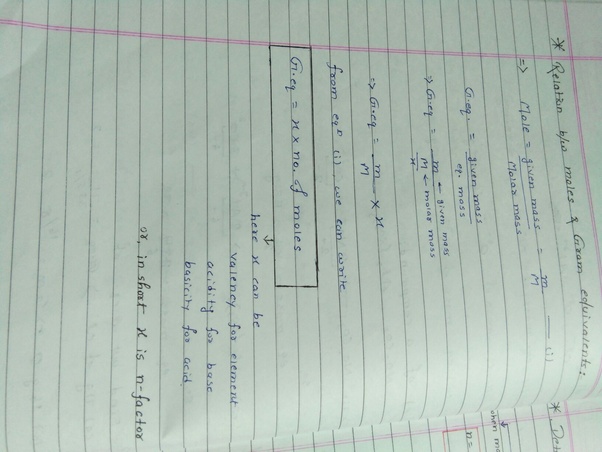 * Relation b/w moles & Gram equivalents:
=> Mole = given mass / Molar mass = m / M —— (i)
G.eq. = given mass / eq. mass
=> G.eq = m ← given mass / M/x ← molar mass
=> G.eq = m / M × x
from eqn (i), we can write
G.eq = x × no. of moles
↓
here x can be
valency for element
acidity for base
basicity for acid
or, in short x is n-factor
* 
when
n =